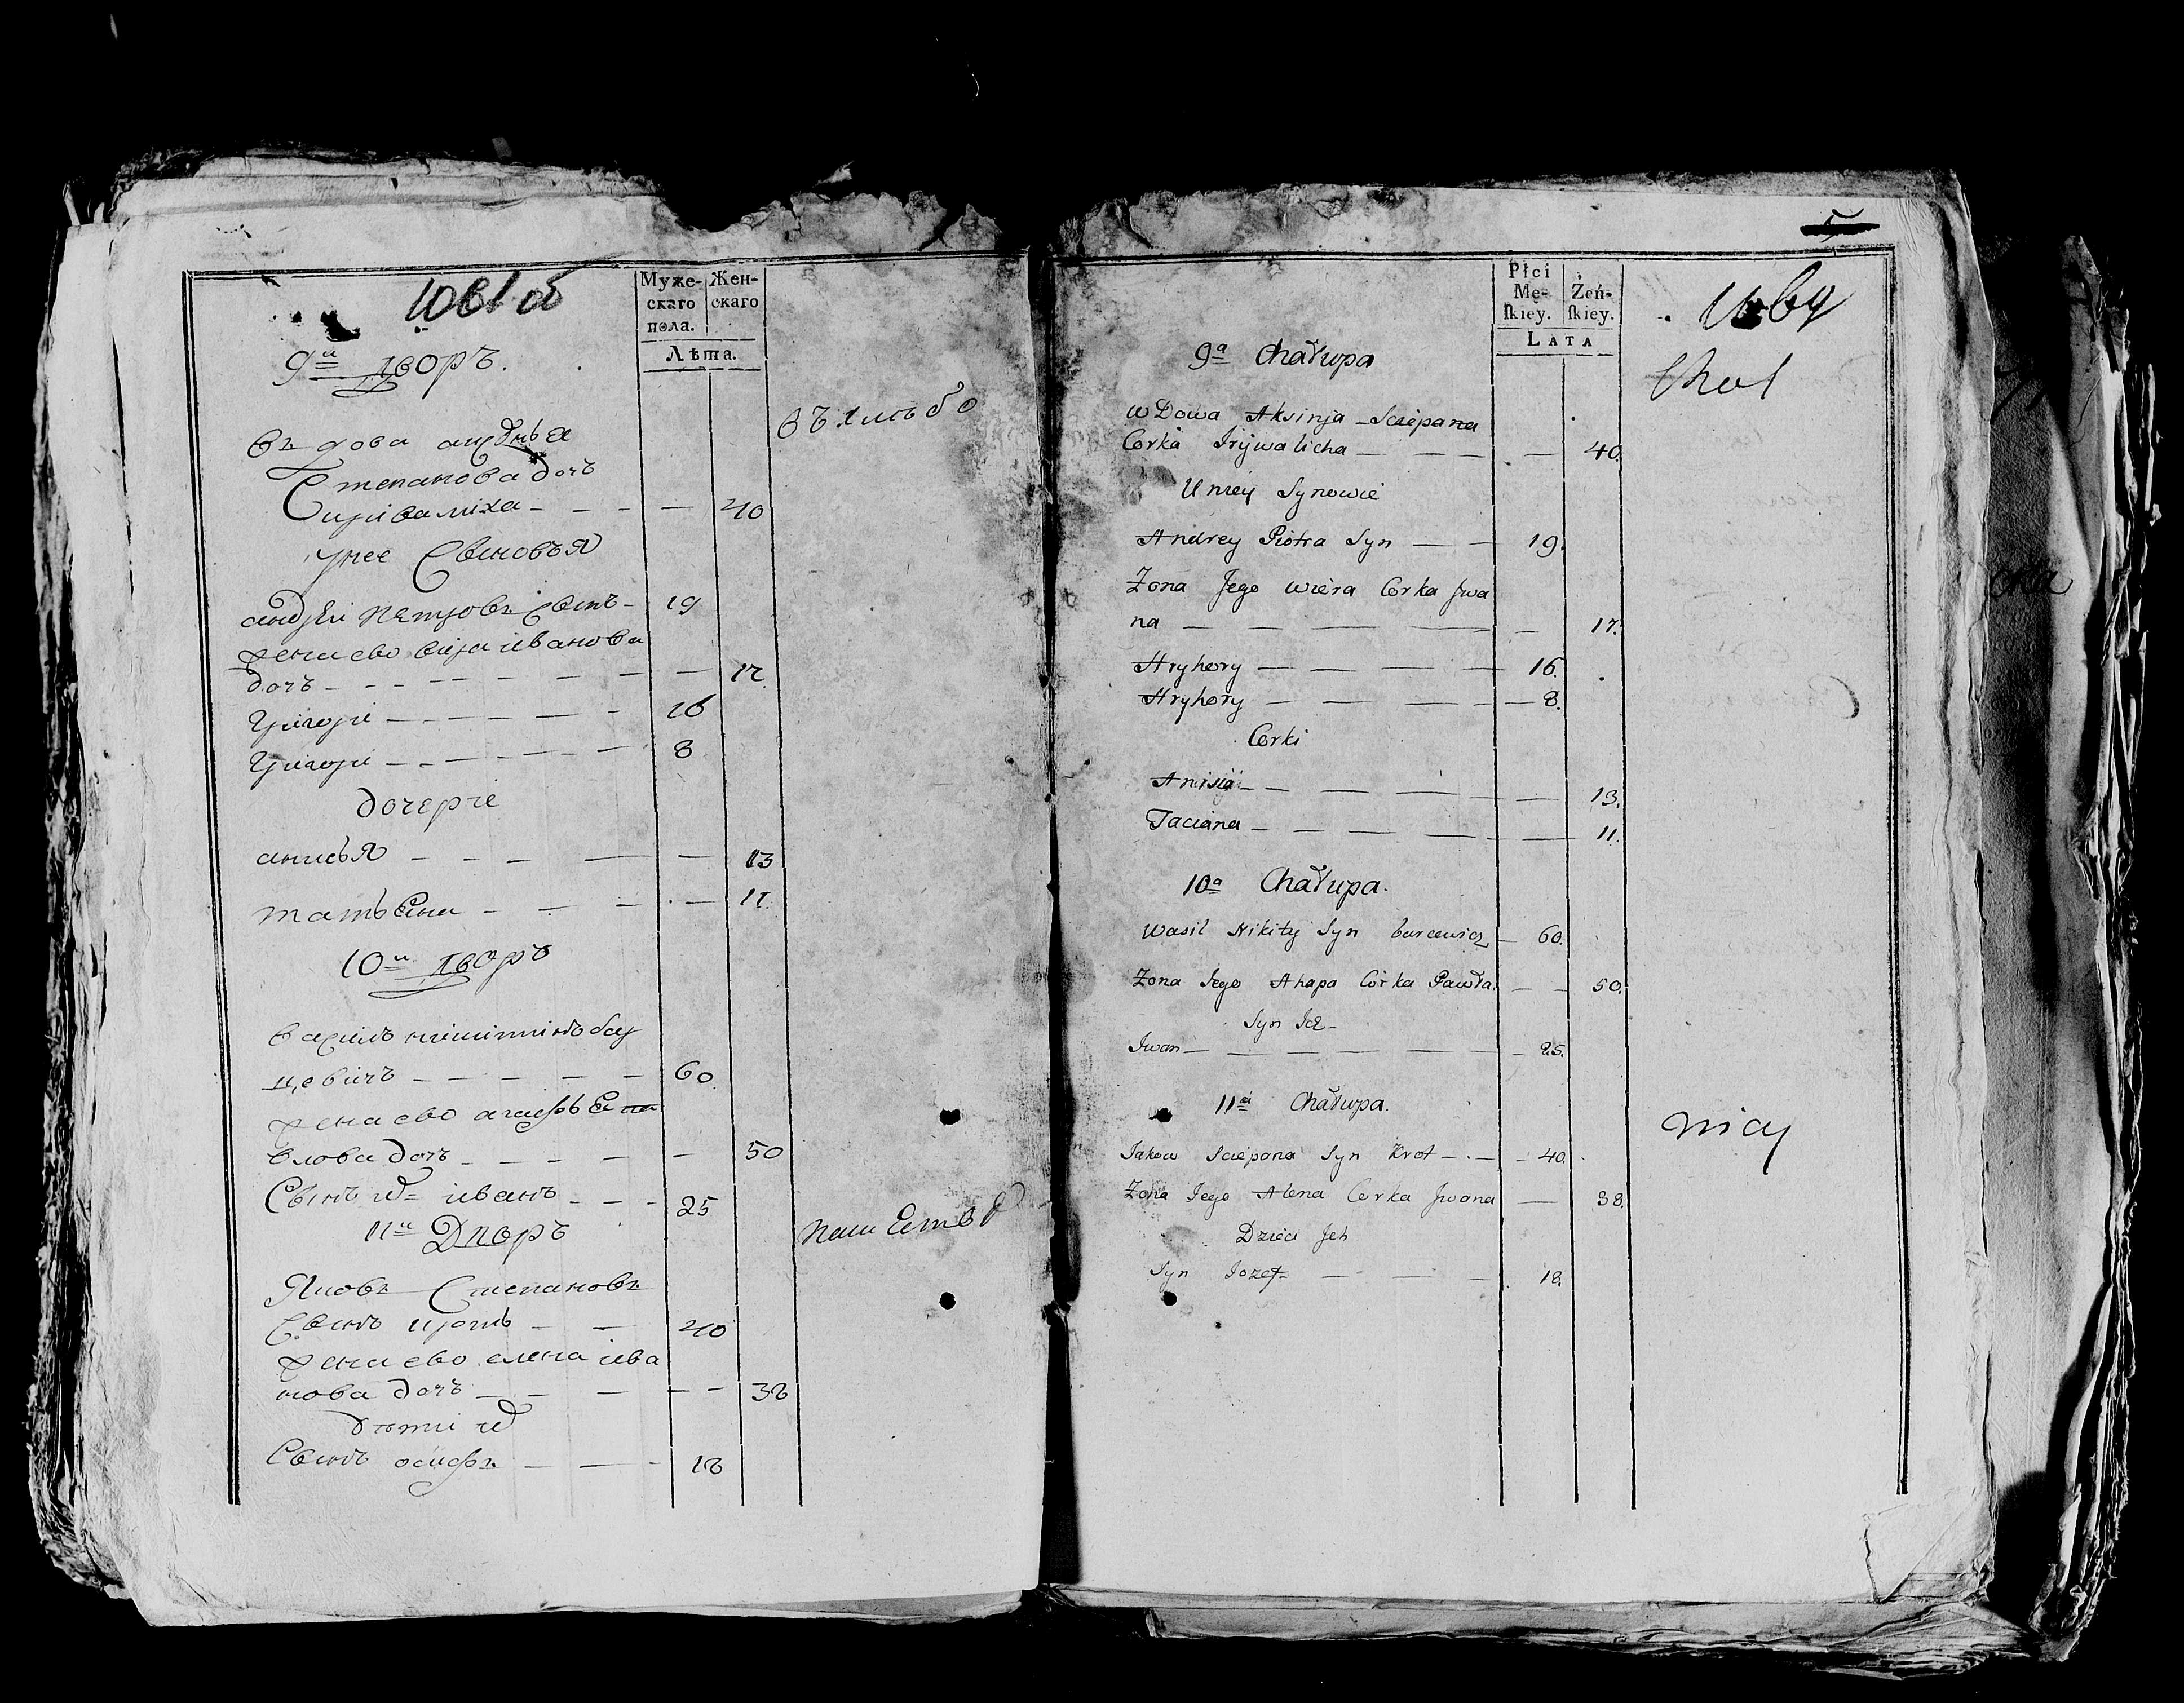 Муже-
скаго
пола.
Жен-
скаго
Лѣта.
9й дворъ.
въ дова
Степанова дочъ
40
унее Сыновъя
андрей петровъ Сынъ 19
жена ево вера иванова
дочъ 17
григори 16
григори 8
дочерїе
анисья 13
татьена 11
10й дворъ
василь никитинъ бар
цевичъ 60
жена ево агафья па
влова дочъ 50
Сынъ их иванъ 25
11й Дворъ
Яковъ Степановъ
Сынъ кротъ 40
жена ево елена ива
нова дочъ 38
дѣти их
Сынъ осифъ 18
5
Płci
Mę-
ſkiey.
Żeń-
ſkiey.
LATA
9a Chałupa
wDowa Aksinja Sciepana
Corka Irywalicha 40.
Uniey Synowie
Andrey Piotra Syn 19.
Żona Jego wiera Corka Jwa
na 17.
Hryhory 16.
Hryhory 8.
Corki
Anisia 13.
Taciana 11.
10a Chałupa.
Wasil Nikity Syn barcewicz 60.
Żona Jego Ahapa Corka Pawła. 50.
Syn Ich
Jwan 25.
11a Chałupa.
Jakow Sciepana Syn Krot 40.
Żona Jego Alena Corka Jwana 38.
Dzieci Jch
Syn Jozef 18.